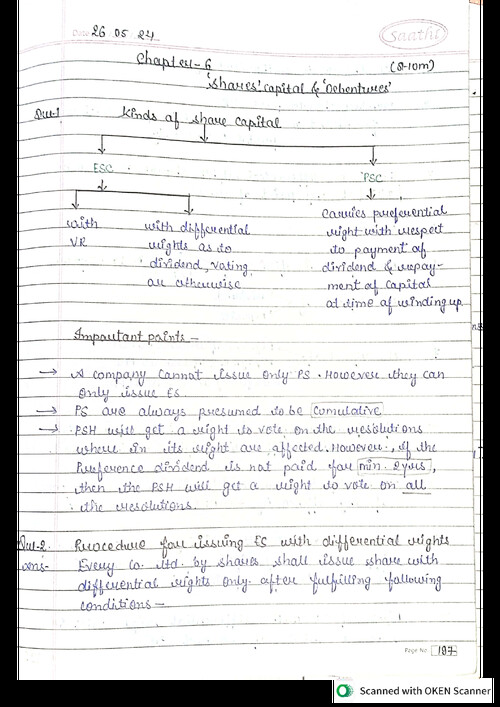 Date 26.05.24
Saathi
Chapter-6
(8-10m)
'Shares' Capital & 'Debentures'
Que-1 Kinds of share capital
ESC PSC
with VR
with differential rights as to dividend, voting or otherwise
carries preferential right with respect to payment of dividend & repayment of capital at time of winding up
Important points -
→ A company cannot issue only PS. However they can
only issue ES.
→ PS are always presumed to be cumulative
→ PSH will get a right to vote on the resolutions
where in its right are affected. However, if the
Preference dividend is not paid for min. 2 yrs,
then the PSH will get a right to vote on all
the resolutions.
Que-2. Procedure for issuing ES with differential rights
ans- Every co. ltd. by shares shall issue share with
differential rights only after fulfilling following
conditions -
Page No. 107
Scanned with OKEN Scanner